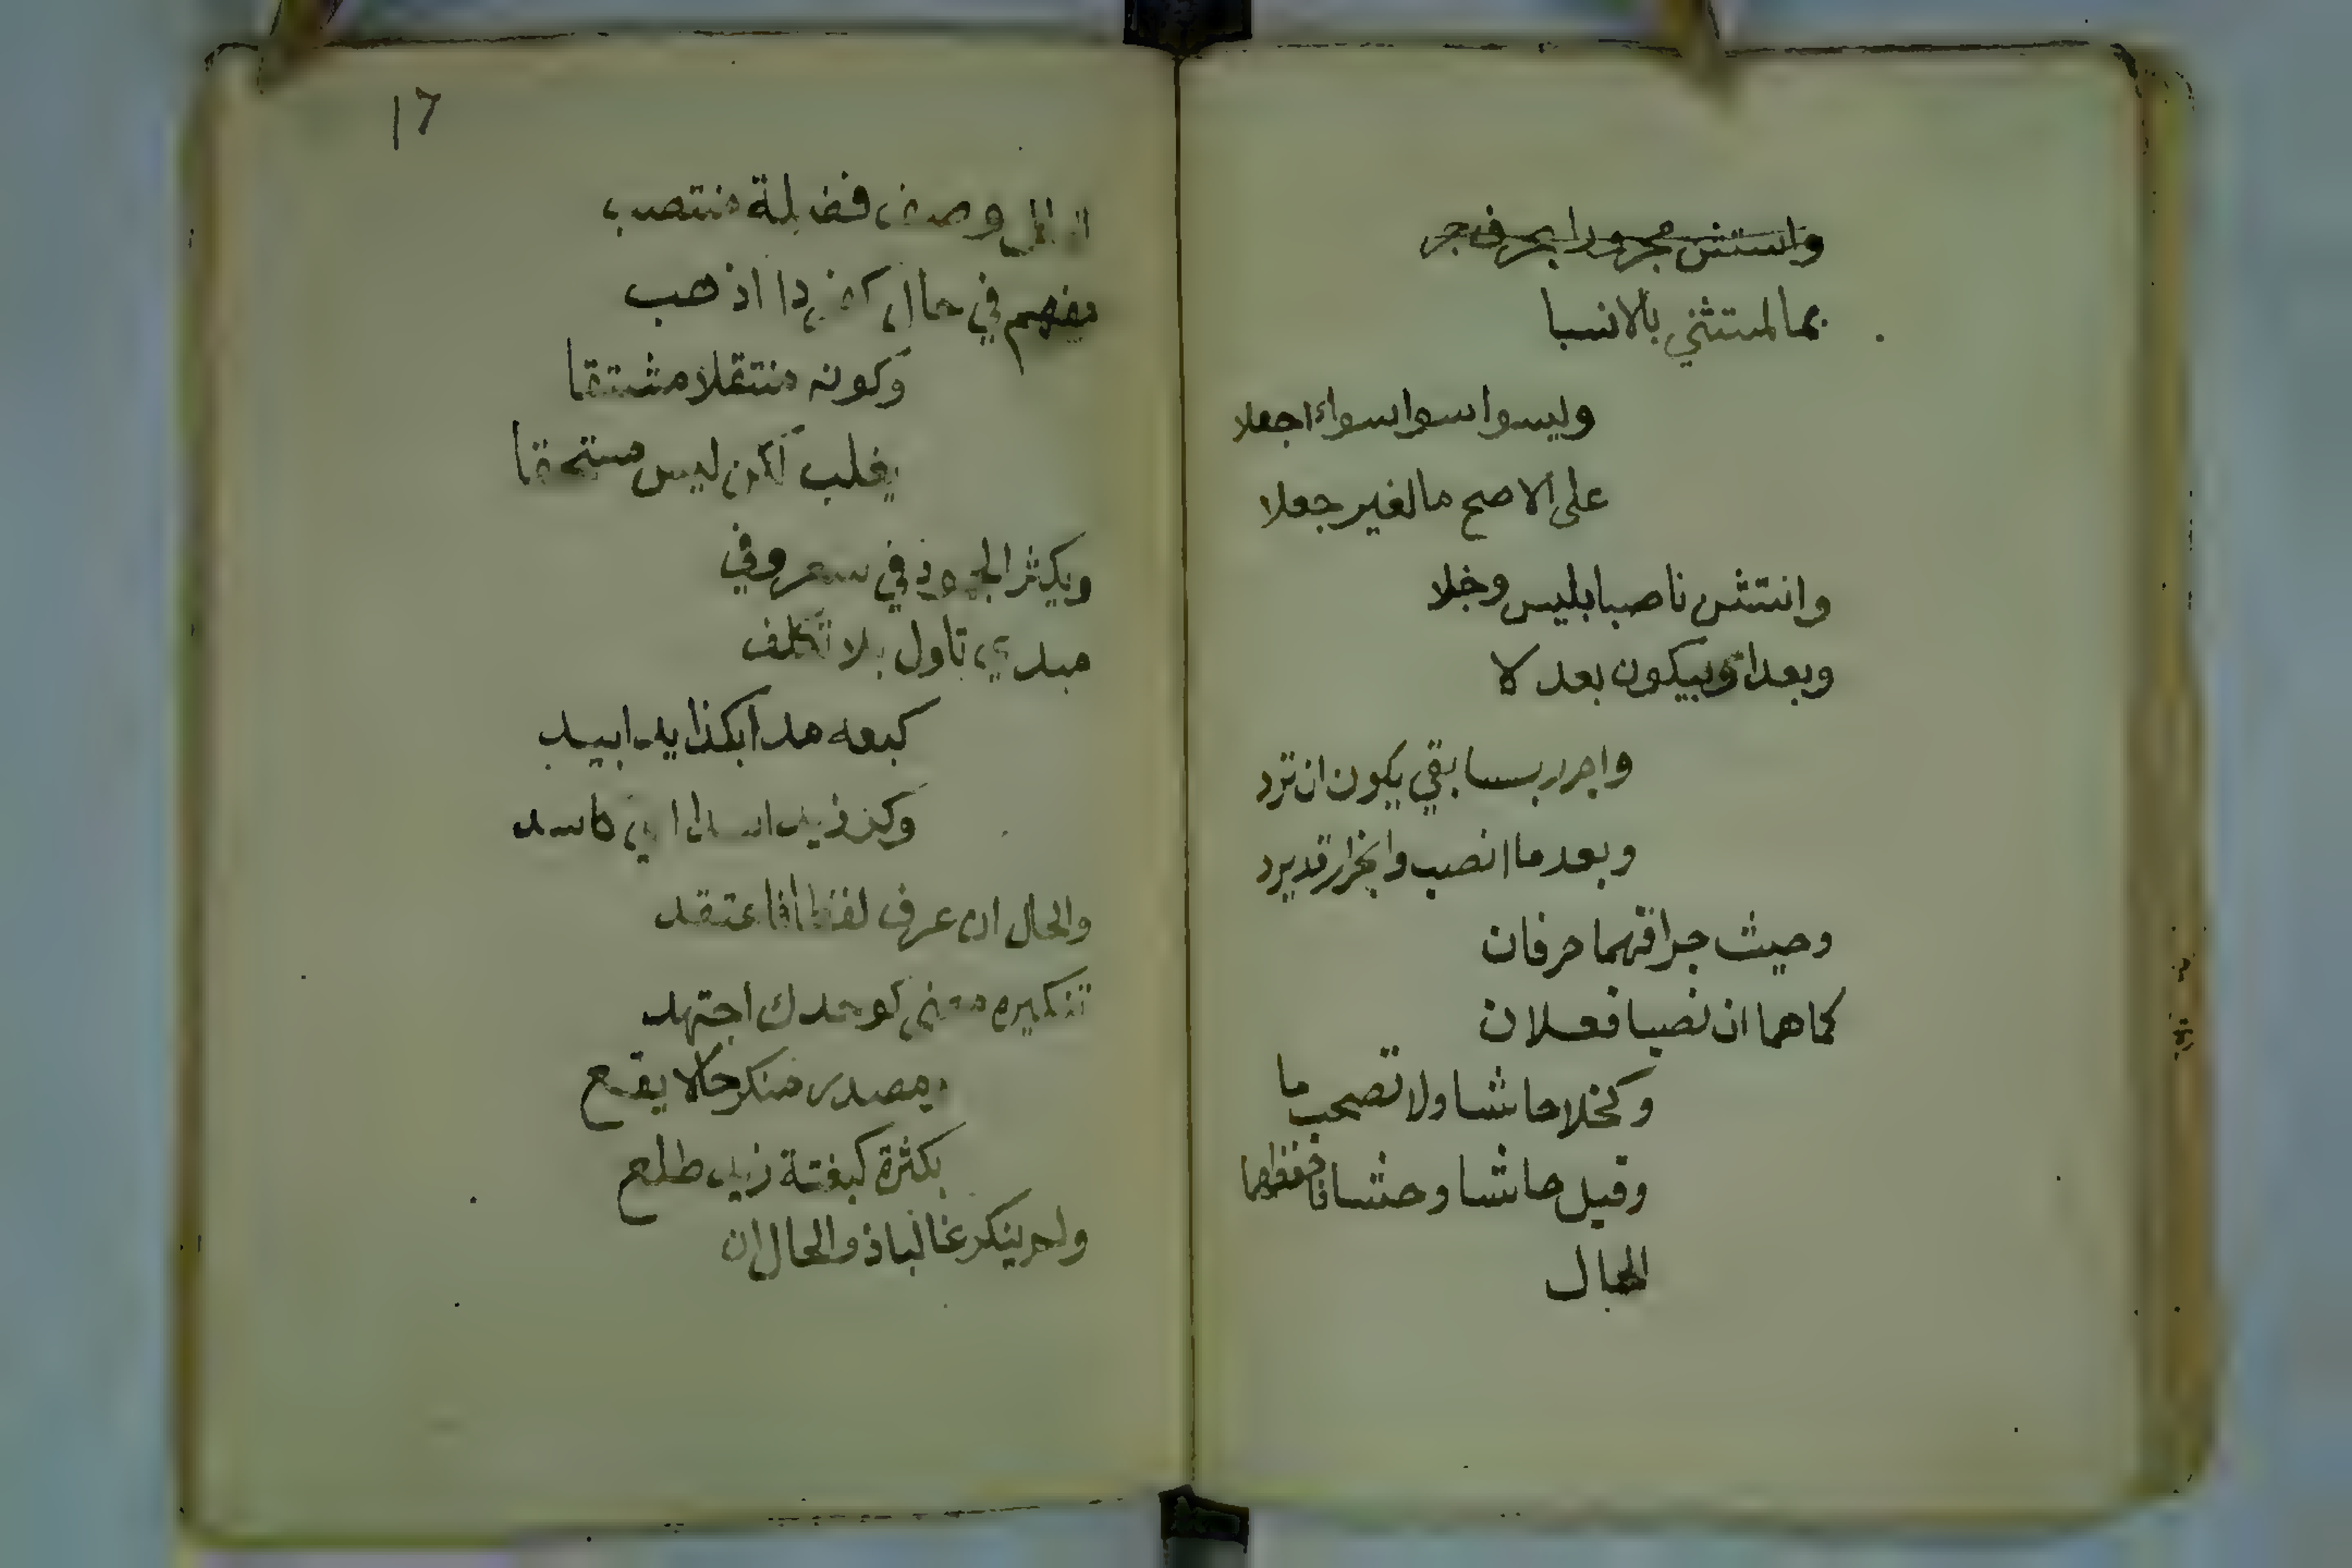 واستثن مجرورا بحرف جر
بما لمستثني بالا نسبا
وليسوا سوا سواء اجعلا
على الاصح ما لغير جعلا
وانتثن ناصبا بليس وخلا
وبعدا وبيكون بعد لا
واجرر بسابقي يكون ان ترد
وبعد ما انصب وانجرار قد يرد
وحيث جرا فهما حرفان
كما هما ان نصبا فعلان
وكخلا حاشا ولا تصحب ما
وقيل حاشا وحشا فاحفظهما
الحال
الحال وصف فضلة منتصب
مفهم في حال كفردا اذهب
وكونه منتقلا مشتقا
يغلب لكن ليس مستحقا
ويكثر الجمود في سعر وفي
مبدي تاول بلا تكلف
كبعه مدا بكذا يدا بيد
وكر زيد اسدا اي كاسد
والحال ان عرف لفظا فاعتقد
تنكيره معنى كوحدك اجتهد
ومصدر منكر حالا يقع
بكثرة كبغتة زيد طلع
ولم ينكر غالبا ذو الحال ان